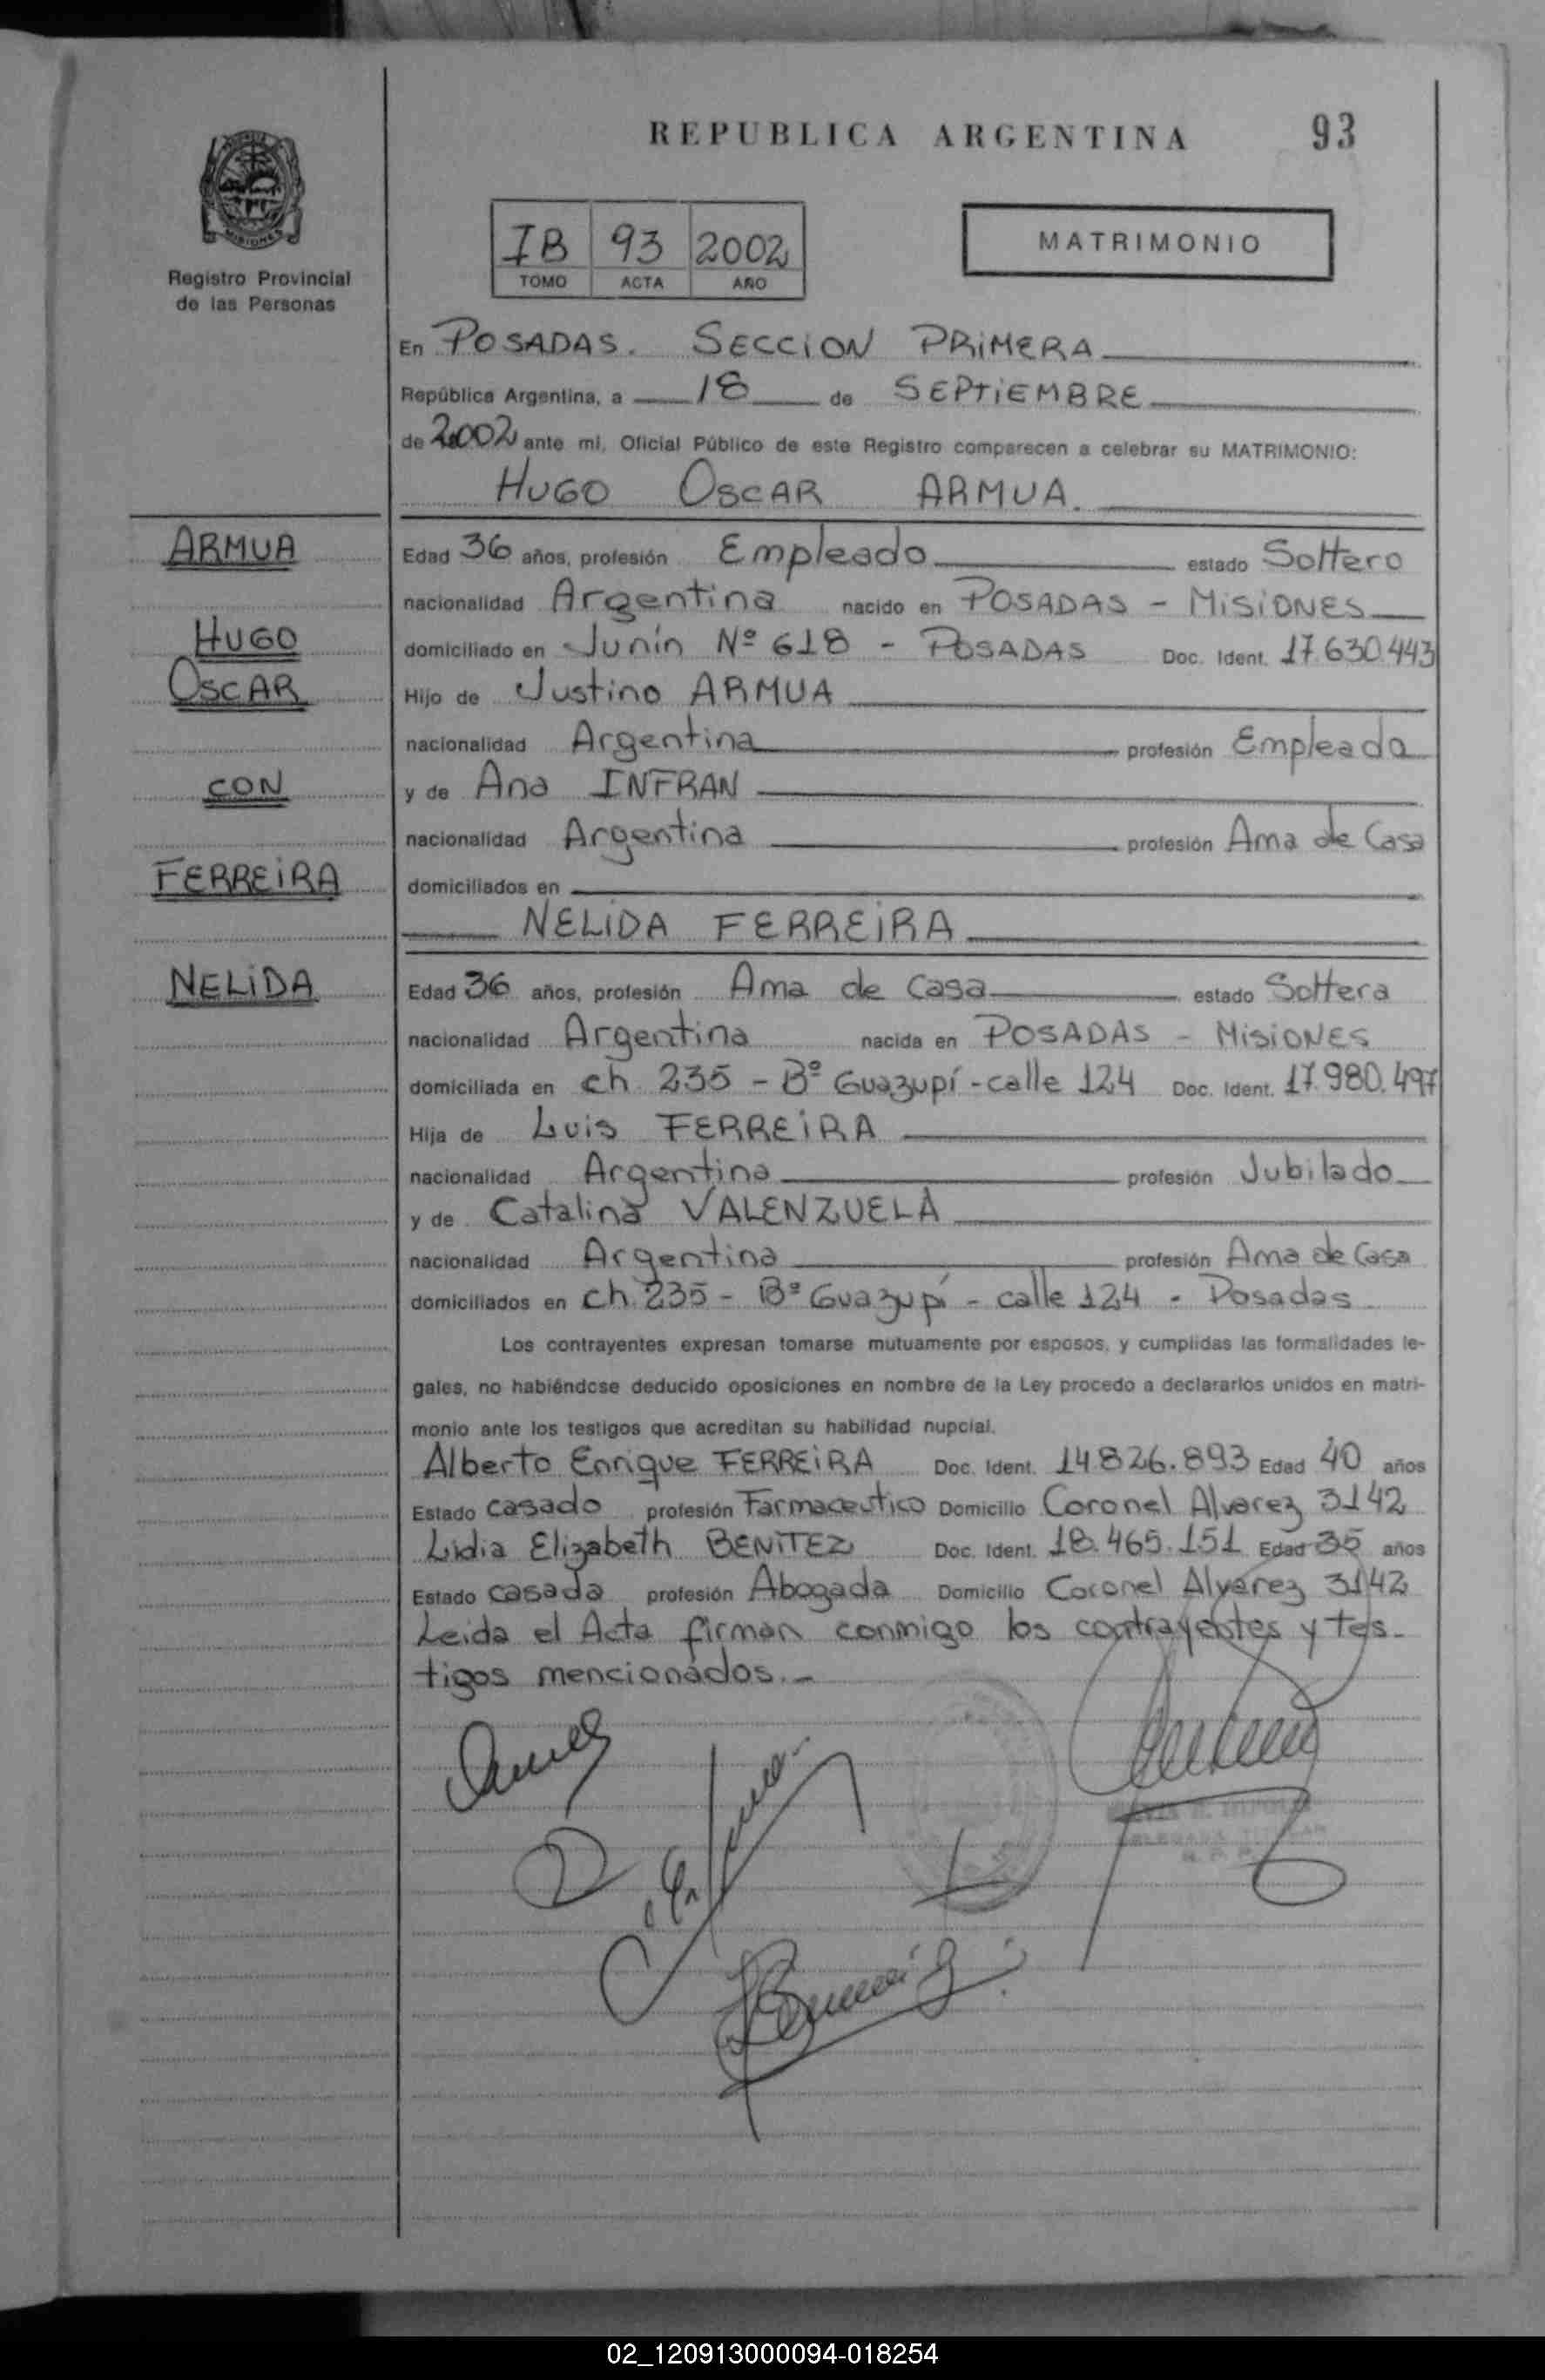 REPUBLICA ARGENTINA
93
MISIONES
Registro Provincial
de las Personas
IB 93 2002
TOMO ACTA AÑO
MATRIMONIO
En POSADAS. SECCION PRIMERA
República Argentina, a 18 de SEPTIEMBRE
de 2002 ante mi, Oficial Público de este Registro comparecen a celebrar su MATRIMONIO:
HUGO OSCAR ARMUA.
ARMUA
HUGO
OSCAR
CON
FERREIRA
NELIDA
Edad 36 años, profesión Empleado estado Soltero
nacionalidad Argentina nacido en POSADAS - MISIONES
domiciliado en Junín Nº 618 - POSADAS Doc. Ident. 17.630.443
Hijo de Justino ARMUA
nacionalidad Argentina profesión Empleado
y de Ana INFRAN
nacionalidad Argentina profesión Ama de Casa
domiciliados en
NELIDA FERREIRA
Edad 36 años, profesión Ama de Casa estado Soltera
nacionalidad Argentina nacida en POSADAS - MISIONES
domiciliada en ch 235 - Bº Guazupí - calle 124 Doc. Ident. 17.980.497
Hija de Luis FERREIRA
nacionalidad Argentina profesión Jubilado
y de Catalina VALENZUELA
nacionalidad Argentina profesión Ama de Casa
domiciliados en ch. 235 - Bº Guazupí - calle 124 - Posadas
Los contrayentes expresan tomarse mutuamente por esposos, y cumplidas las formalidades le-
gales, no habiéndose deducido oposiciones en nombre de la Ley procedo a declararlos unidos en matri-
monio ante los testigos que acreditan su habilidad nupcial.
Alberto Enrique FERREIRA Doc. Ident. 14.826.893 Edad 40 años
Estado casado profesión Farmaceutico Domicilio Coronel Alvarez 3142
Lidia Elizabeth BENITEZ Doc. Ident. 18.465.151 Edad 35 años
Estado casada profesión Abogada Domicilio Coronel Alvarez 3142
Leida el Acta firman conmigo los contrayentes y tes-
tigos mencionados.-
02_120913000094-018254